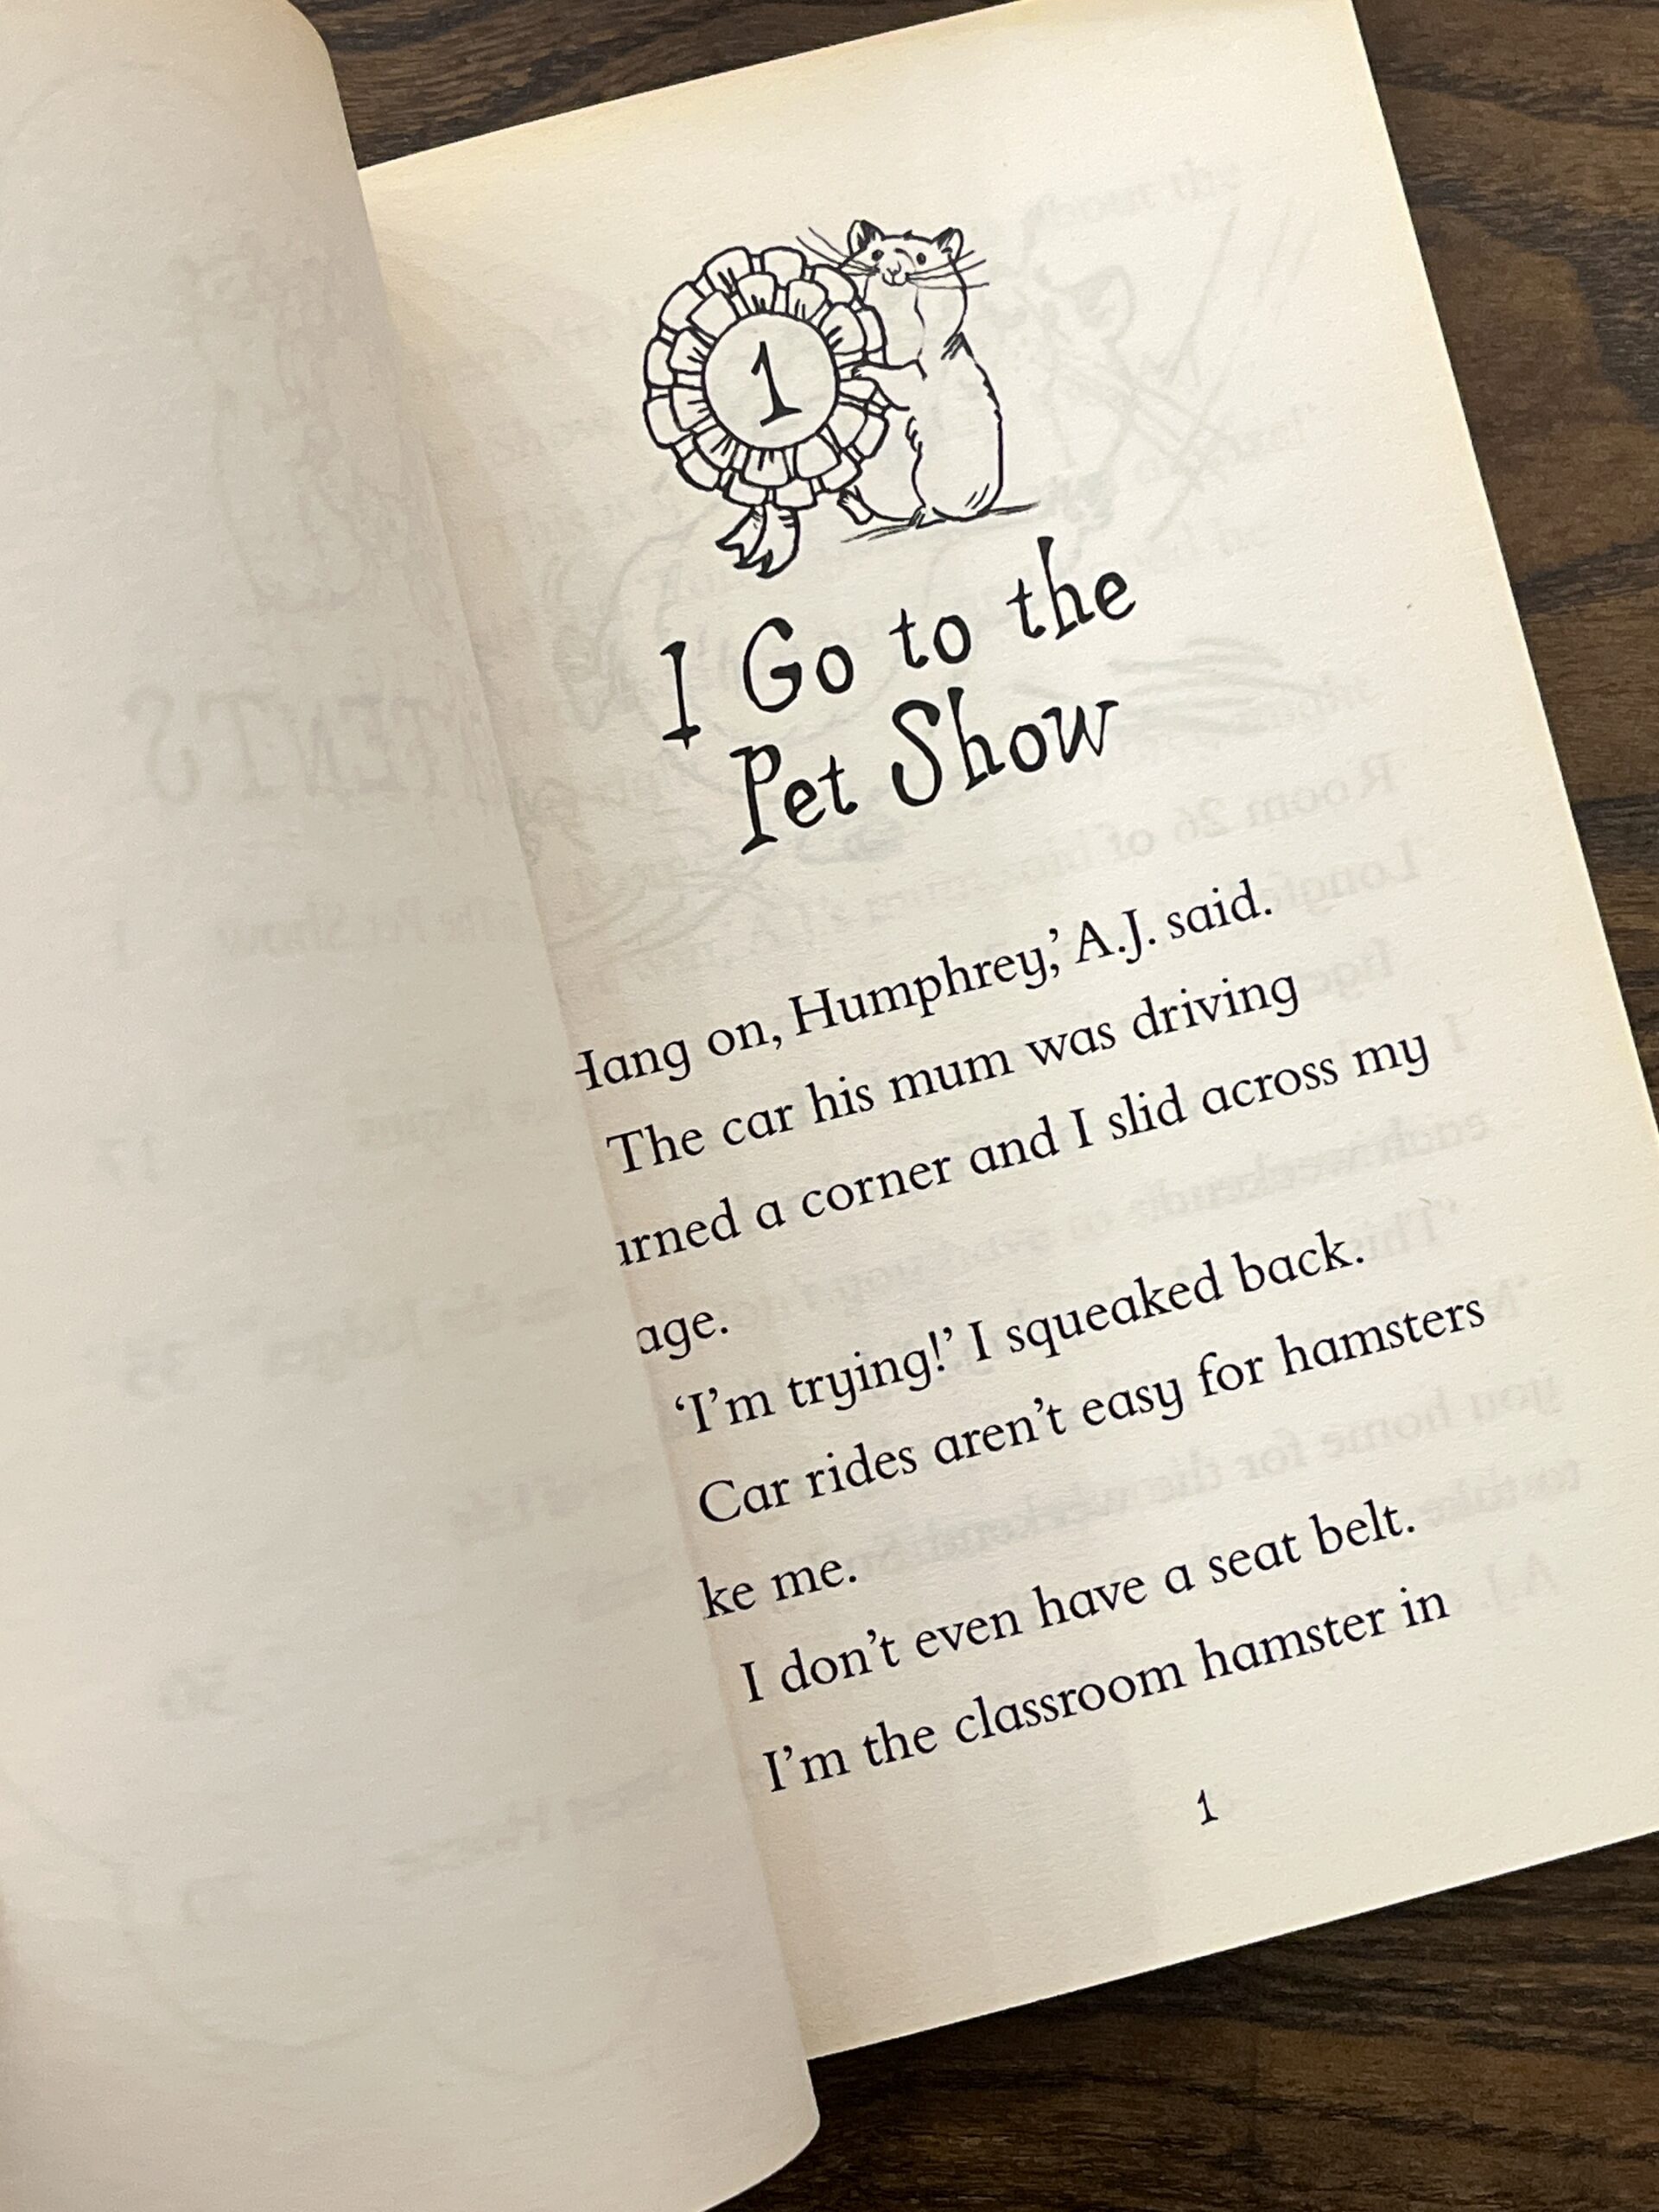 1
I Go to the
Pet Show
Hang on, Humphrey,’ A.J. said.
The car his mum was driving
urned a corner and I slid across my
age.
‘I’m trying!’ I squeaked back.
Car rides aren’t easy for hamsters
ke me.
I don’t even have a seat belt.
I’m the classroom hamster in
1